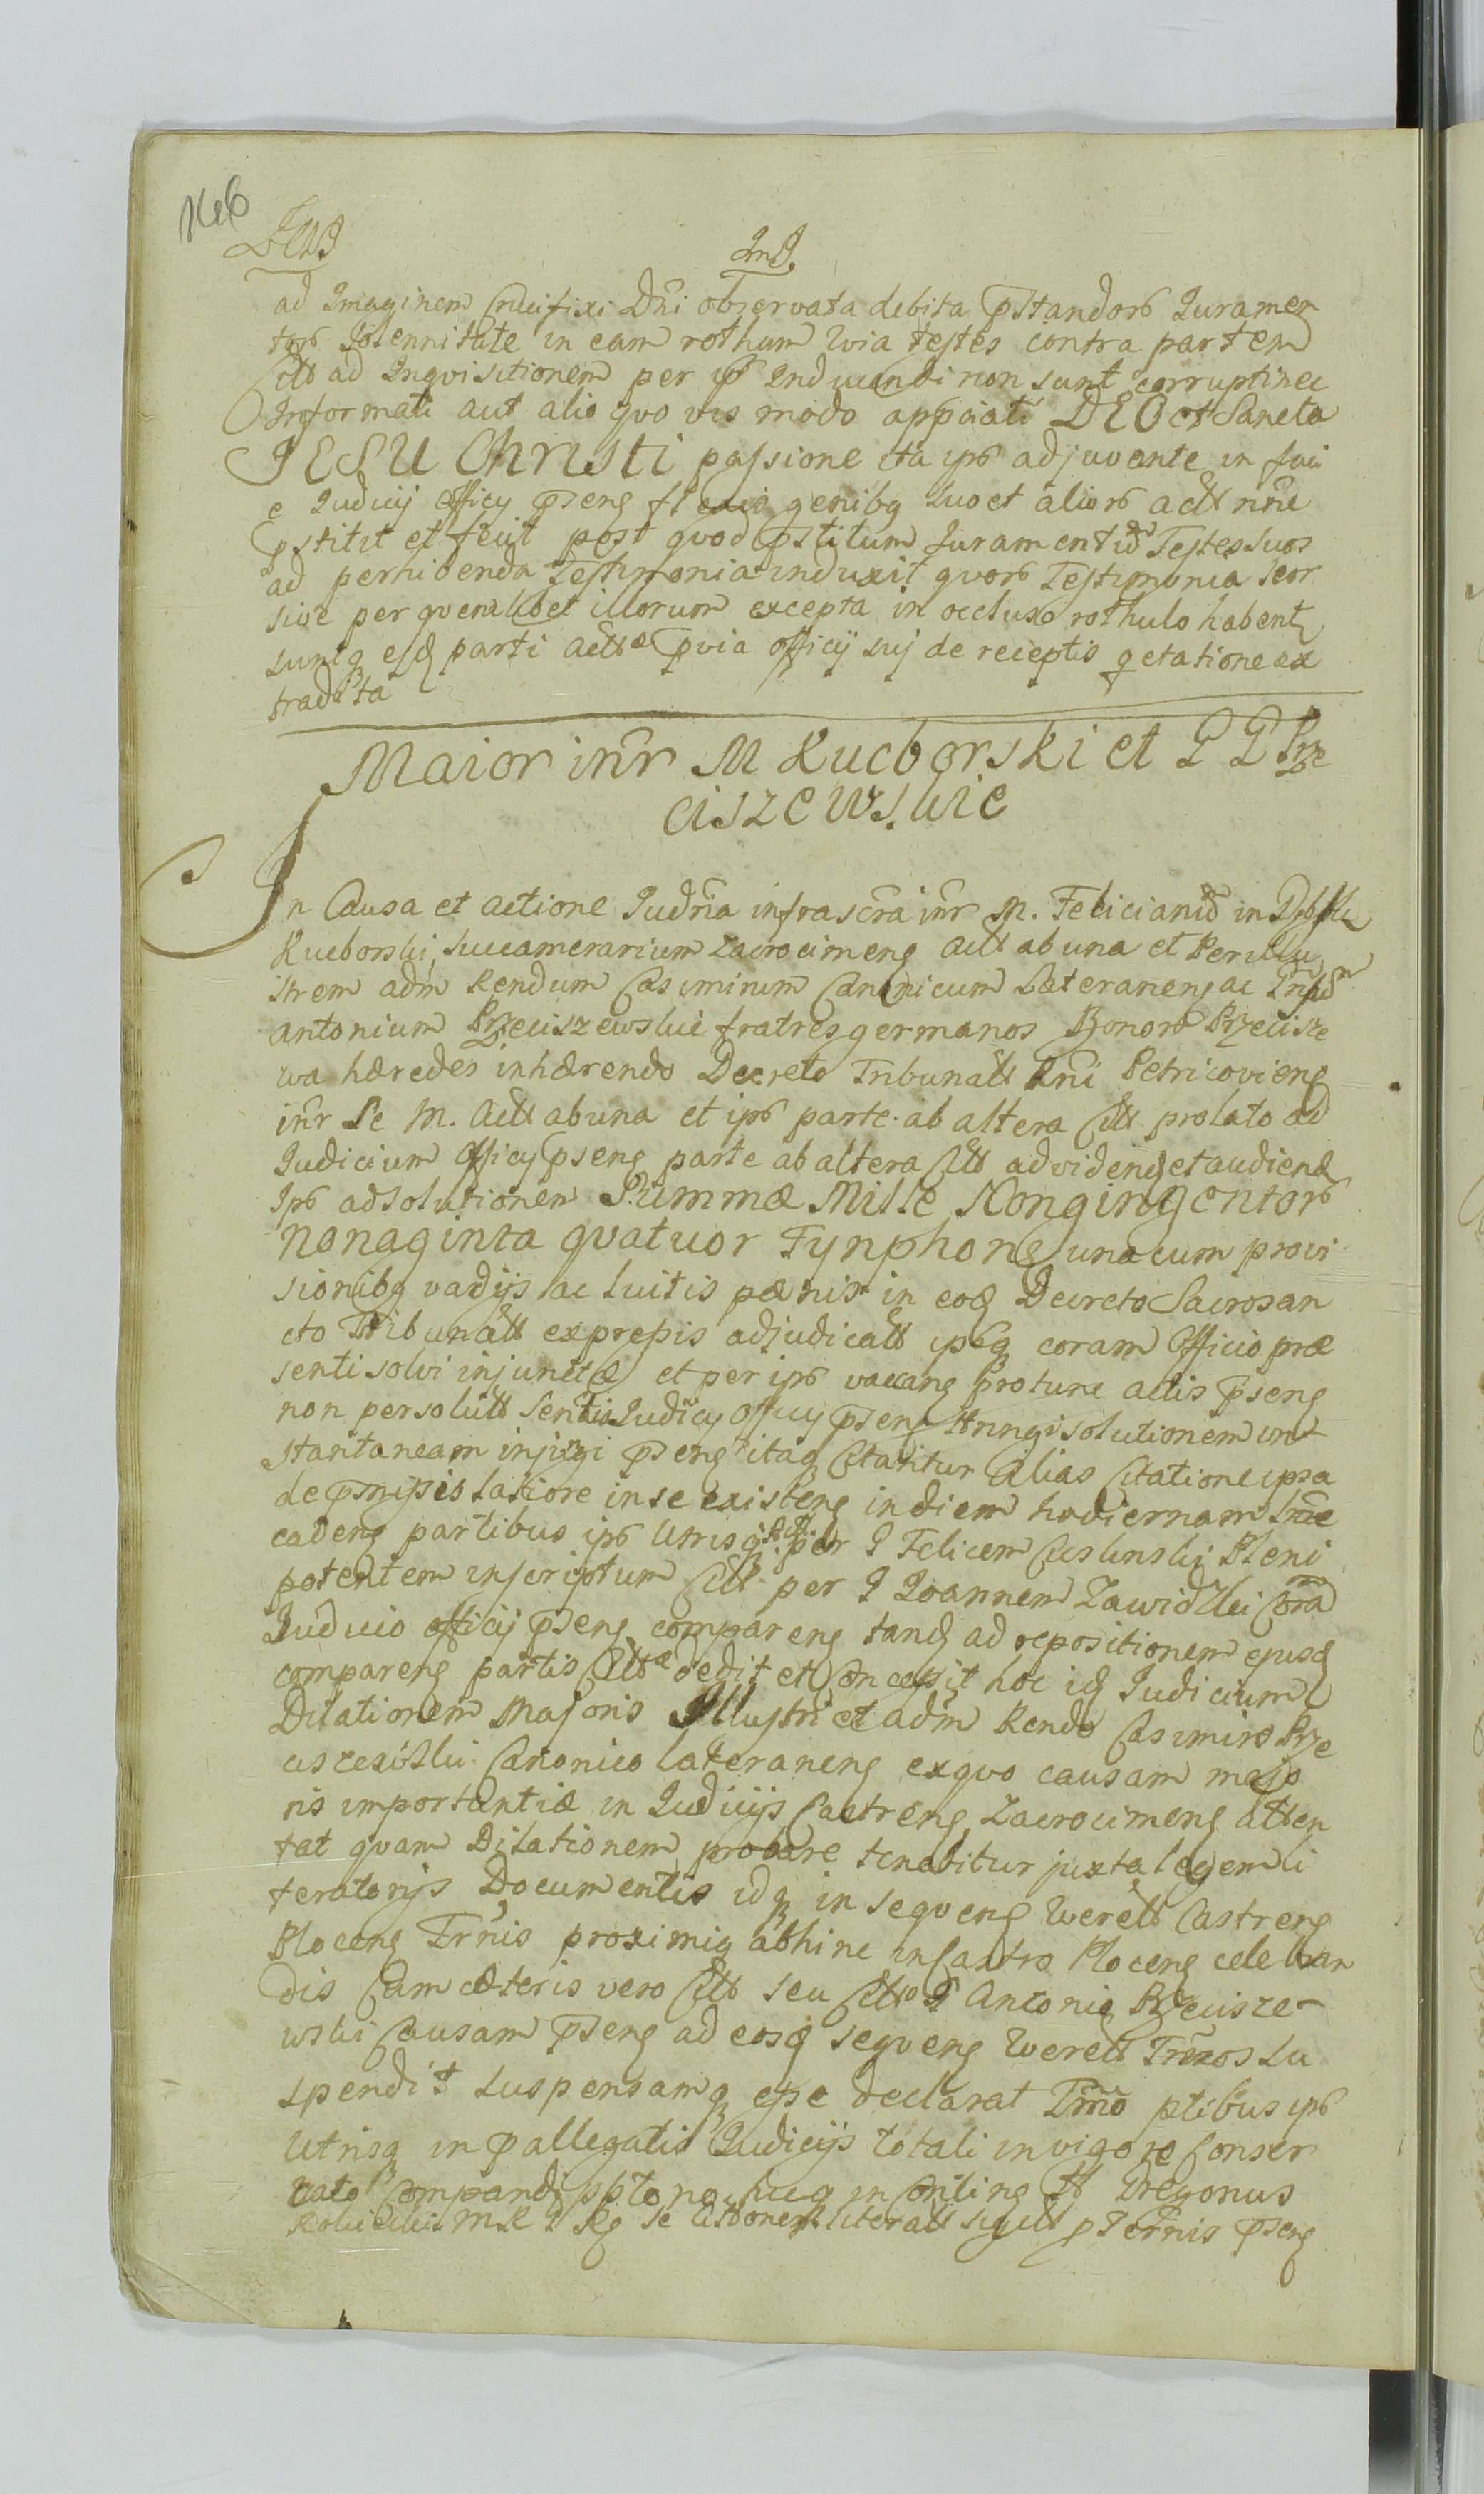 ad Imaginem Crucifixi Dni observata debita pstandorb Juramen
torb solennitate in eam rotham Quia testes contra partem
Citt ad Inqvisitionem per ip Inducendi non sunt corrupti nec
Informati aut alio qvo vis modo appciati DEO et Sancta
JESU Christi passione ita ipb adjuvante in faci
e Judicij officy pseng flexis genibq suo et aliorb actt nne
pstitit et fecit post qvod pstitum Juramentū Testes suos
ad perhibenda Testimonia induxit qvorb Testimonia seor
sive per qvemlibet illorum excepta in occluso rothulo habent
suntq esq parti acttæ pvia officij suj de receptis qetatione ex
tradita
Maior inr M Kucborski et G G Prze
ciszewskie
In Causa et actione Judria infrascra inr M. Felicianū in
Kucborski, Succamerarium Zacrocimeng actt ab una et Perillu
strem adm Rendum Casimirum Canonicum Lateraneng ac
Antonium Przeciszewskie fratres germanos Bonorb Przecisze
wa hæredes inhærendo Decreto Tribunatt Rni Petricovieng
inr Se M. Actt ab una et ipb parte ab altera Citt prolato ad
Judicium Officy pseng parte ab altera Citt ad videng et audiend
Ipb adsolutionem Summæ Mille Nongingentorb
nonaginta qvatuor Tynphong una cum provi
sionibq vadijs ac luitis pænis in eoq Decreto Sacrosan
cto Tribunatt expressis adjudicatt ipbq coram Officio præ
senti solvi injunctæ et per ipb vacang protunc actis pseng
non persolutt Sentia Judicij Officy pseng stringi solutionem ins
stantaneam injungi pseng itaq Citatitur Alias Citatione ipsa
de pmissis latiore in se existeng in diem hodiernam
cadeng partibus ipb Utrisq Act. per G Felicem Cieslinski Pleni
potentem inscriptum Citt per G Joannem Zawidzki Cora
Judicio officij pseng compareng tandq ad repositionem ejusq
compareng partis Cittæ dedit et Concessit hoc idq Judicium
Dilationem Majoris Illustri et adm Rendo Casimiro Prze
ciszewski Canonico Lateraneng ex qvo causam majo
ris importantiæ in Judicijs Castreng Zacrocimeng atten
tat qvam Dilationem probare tenebitur juxta legem li
teratorijs Documentis idq in seqveng Querett Castreng
Ploceng Trnis proximiq abhinc in Castro Ploceng celebran
dis Cum cæteris vero Citt seu Citto G Antonio Przecisze
wski Causam pseng ad eosq seqveng Querett Trnos su
spendit suspensamq esse declarat Trmo ptibus ipb
Utrisq in pallegatis Judicijs totali in vigore Conser
vato Comparandi